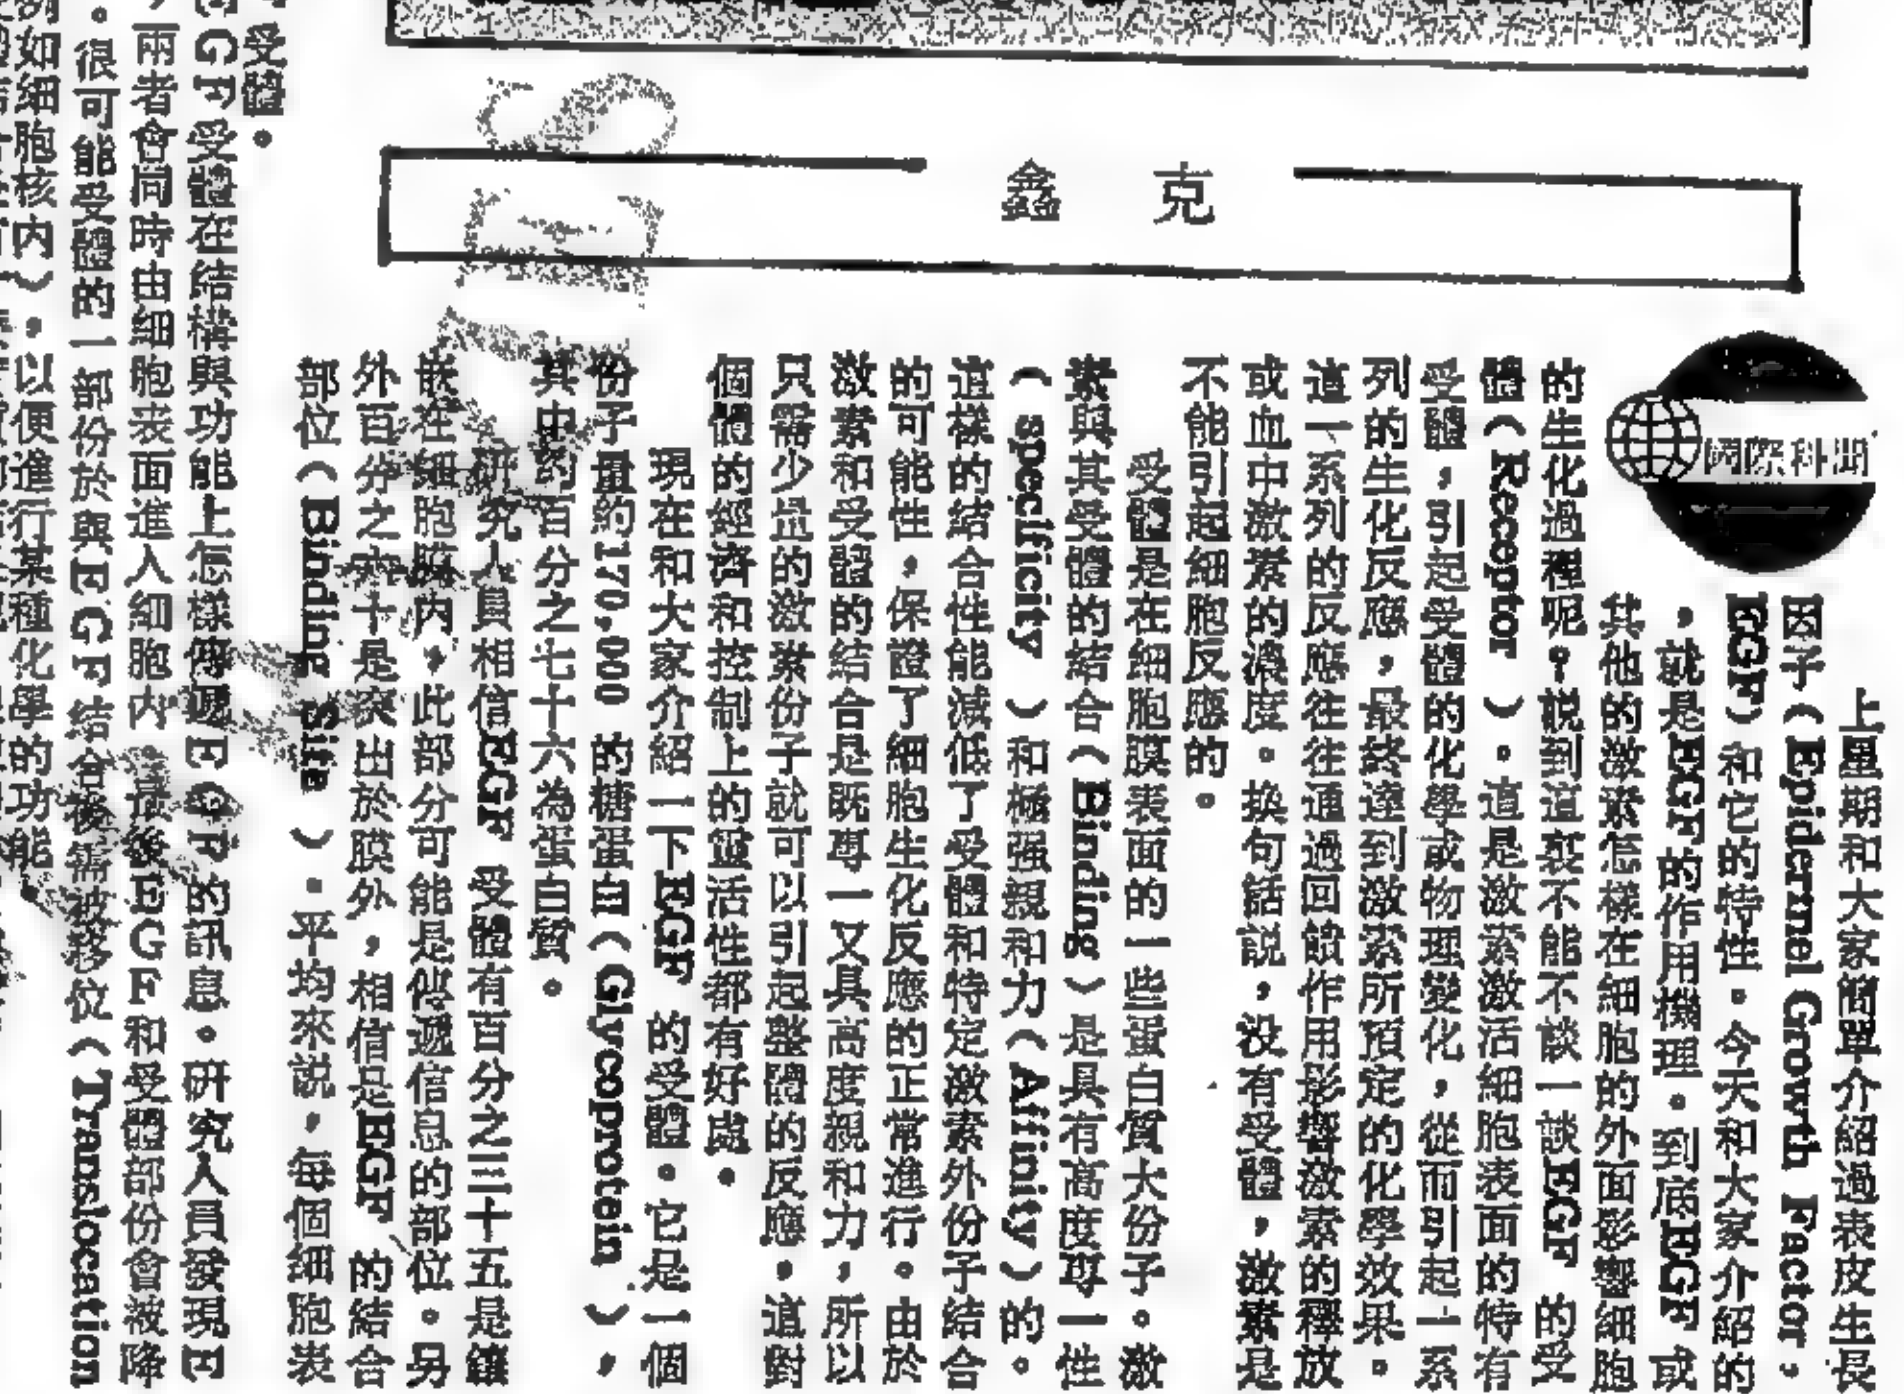 鑫　克
國際科盟
上星期和大家簡單介紹過表皮生長
因子（Epidermel Growth Factor，
EGF）和它的特性。今天和大家介紹的
，就是EGF的作用機理。到底EGF或
其他的激素怎樣在細胞的外面影響細胞
的生化過程呢？說到這裏不能不談一談EGF 的受
體（Receptor ）。這是激素激活細胞表面的特有
受體，引起受體的化學或物理變化，從而引起一系
列的生化反應，最終達到激素所預定的化學效果。
這一系列的反應往往通過回饋作用影響激素的釋放
或血中激素的濃度。換句話說，沒有受體，激素是
不能引起細胞反應的。
受體是在細胞膜表面的一些蛋白質大份子。激
素與其受體的結合（Binding）是具有高度專一性
（ specificity ）和極强親和力（Affinity）的。
這樣的結合性能減低了受體和特定激素外份子結合
的可能性，保證了細胞生化反應的正常進行。由於
激素和受體的結合是既專一又具高度親和力，所以
只需少量的激素份子就可以引起整體的反應，這對
個體的經濟和控制上的靈活性都有好處。
現在和大家介紹一下EGF 的受體。它是一個
份子量約170,000 的糖蛋白（Glycoprotein ），
其中約百分之七十六為蛋白質。
研究人員相信EGF 受體有百分之三十五是鑲
嵌在細胞膜內，此部分可能是傳遞信息的部位。另
外百分之六十是突出於膜外，相信是EGF 的結合
部位（Binding Site ）。平均來說，每個細胞表
受體。
EGF受體在結構與功能上怎樣傳遞EGF的訊息。研究人員發現E
，兩者會同時由細胞表面進入細胞內。最後EGF和受體部份會被降
。很可能受體的一部份於與EGF結合後需被移位（Translocation
例如細胞核內），以便進行某種化學的功能